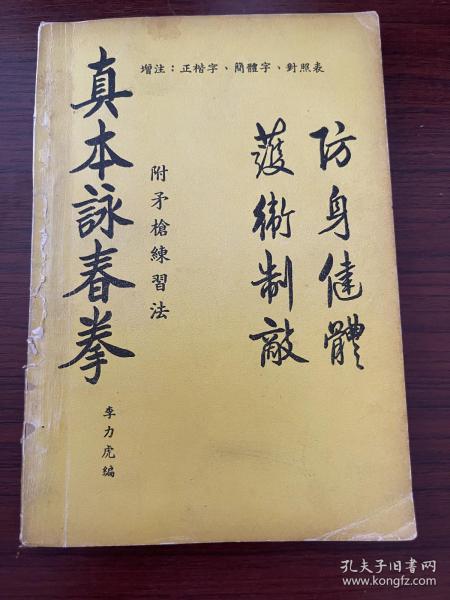 增注：正楷字、簡體字、對照表
防身健體
護衛制敵
附矛槍練習法
真本詠春拳
李力虎編
孔夫子旧书网
www.kongfz.com